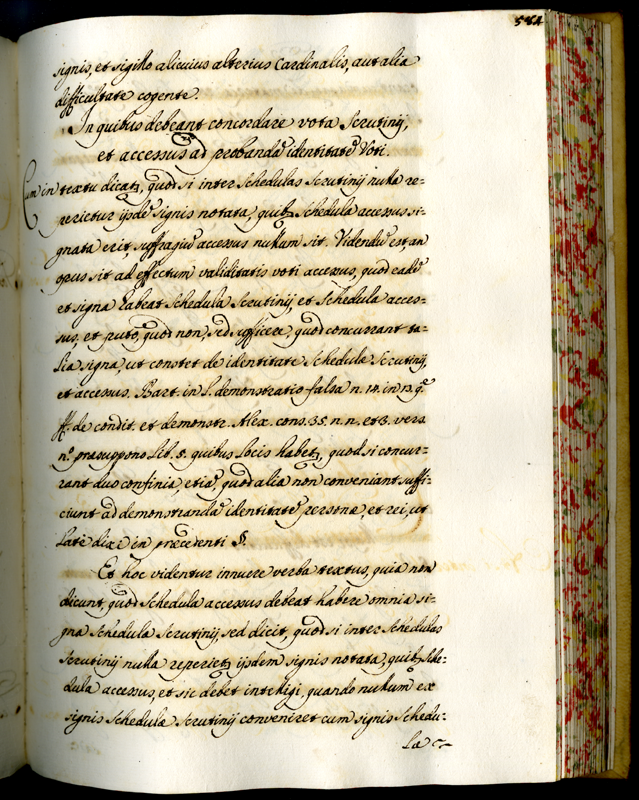 584
signis, et sigillo alicuius alterius Cardinalis, aut alia
difficultate cogente.
In quibus debeant concordare vota Scrutinij,
et accessus ad probandã identitatẽ Voti.
Cum in textu dicatr, quod si inter Schedulas Scrutinij nulla re-
perietur ijsdẽ signis notata, quibs Schedula accessus si-
gnata erit, suffragiũ accessus nullum sit. Videndũ est, an
opus sit ad effectum validitatis voti accessus, quod eadẽ
et signa habeat Schedula Scrutinij, et Schedula acces-
sus, et puto, quod non, sed sufficere, quod concurrant ta-
lia signa, ut constet de identitate Schedulæ Scrutinij,
et accessus. Bart. in l. demonstratio falsa n. 14. in
ff. de condit. et demonstr. Alex. cons. 35. n. n. et 3. vers
no. præsuppono Lib. 5. quibus locis habetr, quod si concur-
rant duo confinia, etiã quod alia non conveniant suffi-
ciunt ad demonstrandã identitatẽ personæ, et rei, ut
latè dixi in præcedenti §.
Et hoc videntur innuere verba textus, quia non
dicunt, quod Schedula accessus debeat habere omnia si-
gna Schedulæ Scrutinij, sed dicit, quod si inter Schedulas
Scrutinij nulla reperietr ijsdem signis notata, quibs Sche-
dula accessus, et sic debet intelligi, quando nullum ex
signis Schedulæ Scrutinij conveniret cum signis Schedu-
læ